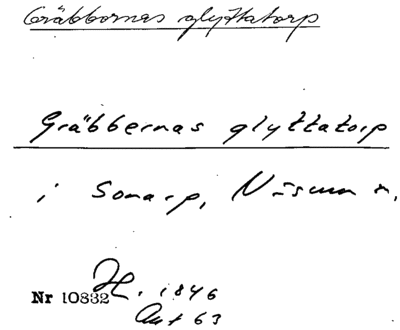 Gräbbornas glyttatorp
Gräbbernas glyttatorp
i Sonarp,
Nr 10832 H. 1846
63